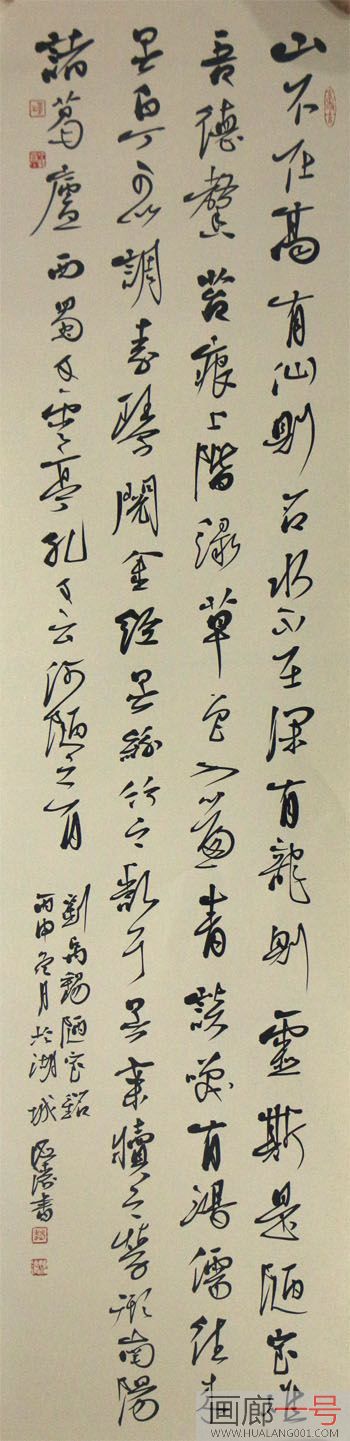 山不在高有仙則名水不在深有龍則靈斯是陋室惟
吾德馨苔痕上階綠草色入簾青談笑有鴻儒往來
無白丁可以調素琴閱金經無絲竹之亂耳無案牘之勞形南陽
諸葛廬西蜀子雲亭孔子云何陋之有
劉禹錫陋室銘
丙申冬月於湖城書
画廊一号
WWW.HUALANG001.COM